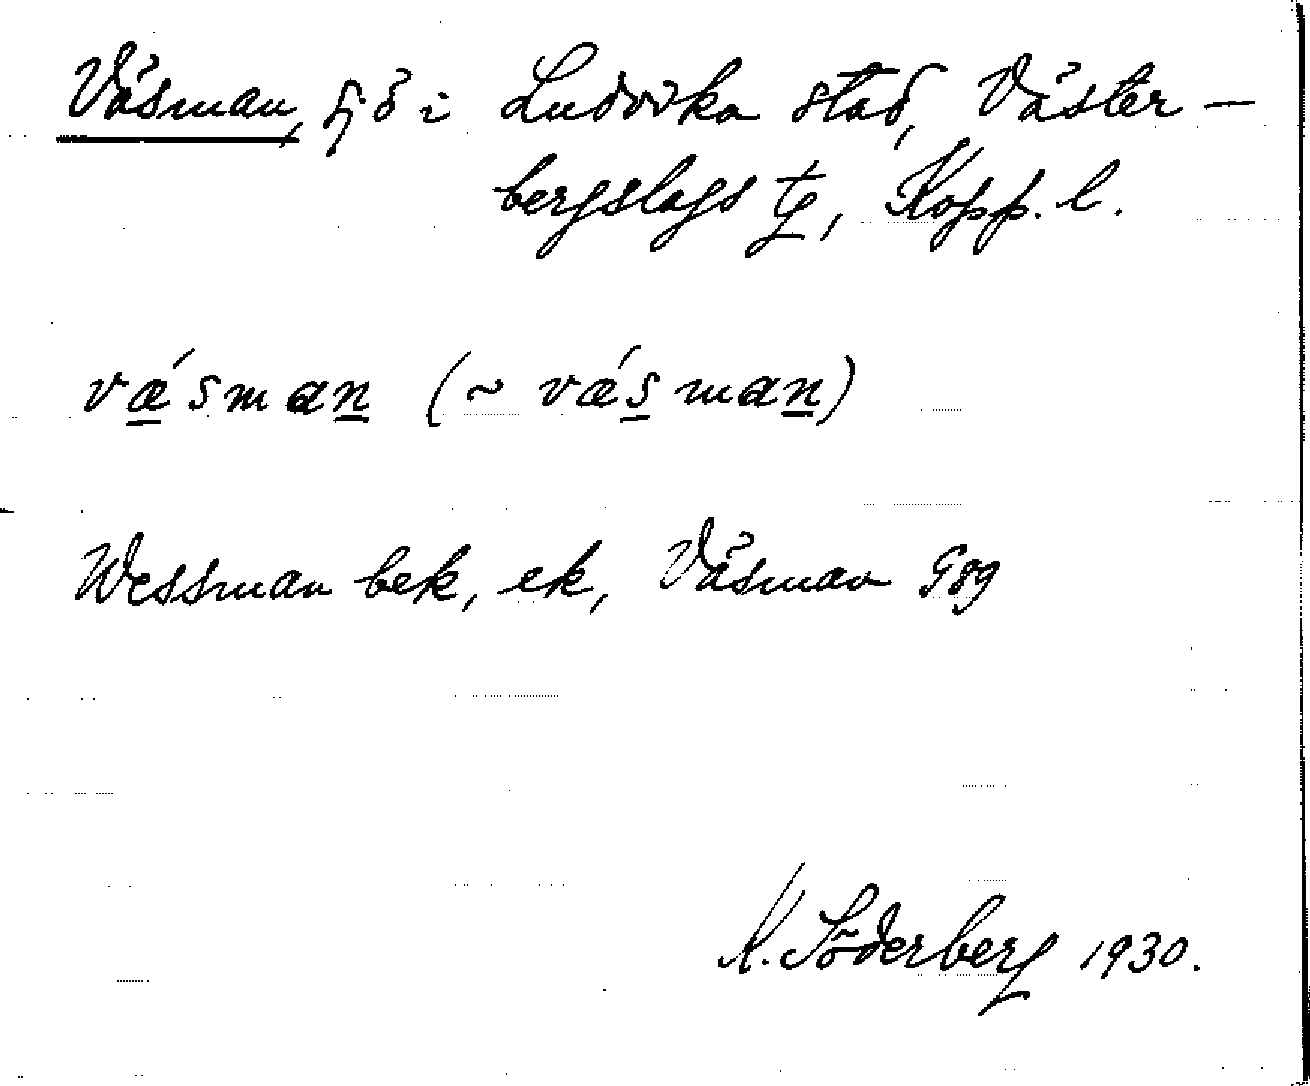 Väsman, sjö i Ludvika stad, Väster-
bergslags tg, Kopp. l.
vǽsman (~ vǽsman)
Wessman bek, ek, Väsman G89
K. Söderberg 1930.